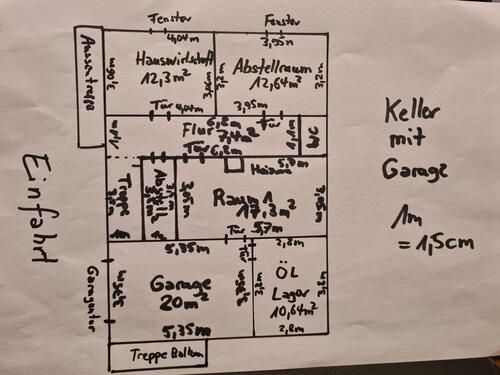 Fenster
Fenster
4,04m
3,95m
Aussentreppe
Hauswirtschaft
12,3m²
Abstellraum
12,64m²
3,2m
3,2m
Tür
4,04m
3,95m
Tür
6,8m
Flur
7,4m²
1,1m
1,1m
WC
Tür
6,8m
Heizung
5,7m
Treppe
Abstell
Raum 1
17,3m²
3,05m
3,05m
1m
1m
5,7m
5,35m
Tür
Tür
2,8m
Garage
20m²
ÖL
Lager
10,64m²
3,8m
3,8m
Garagentor
5,35m
2,8m
Treppe Balkon
Einfahrt
Keller
mit
Garage
1m
= 1,5cm